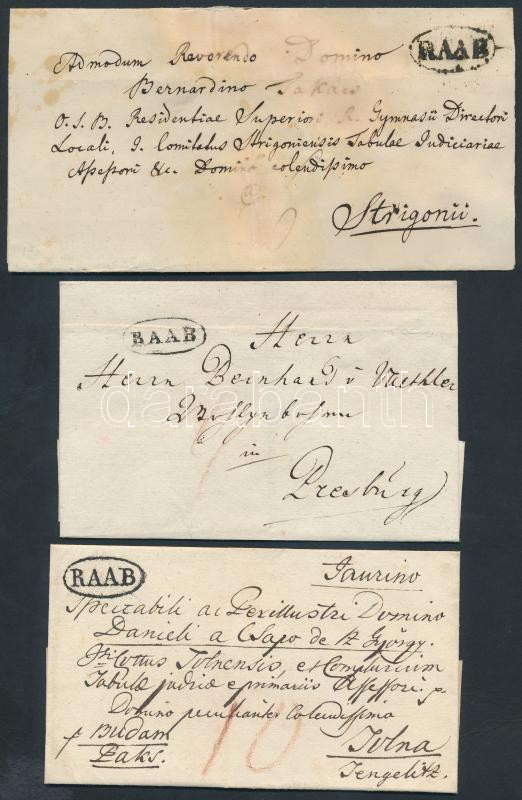 RAAB
Admodum Reverendo Domino
Bernardino Takács
O. S. B. Residentiae Superiori R. Gymnasii Directori
Locali, I. Comitatus Strigoniensis Tabulae Judiciariae
Assessori &c. Domino colendissimo
Strigonii.
RAAB
Herrn
Herrn Bernhard v
in
Presburg
darabanth
RAAB
Jaurino
Spectabili ac Perillustri Domino
Danieli a Csapo de Sz György.
Tolnensis, et Complurium
Tabulae judriae primariis Assessori
Domino peculiariter Colendissimo
p Budam
Paks.
Tolna
Tengelitz.
10